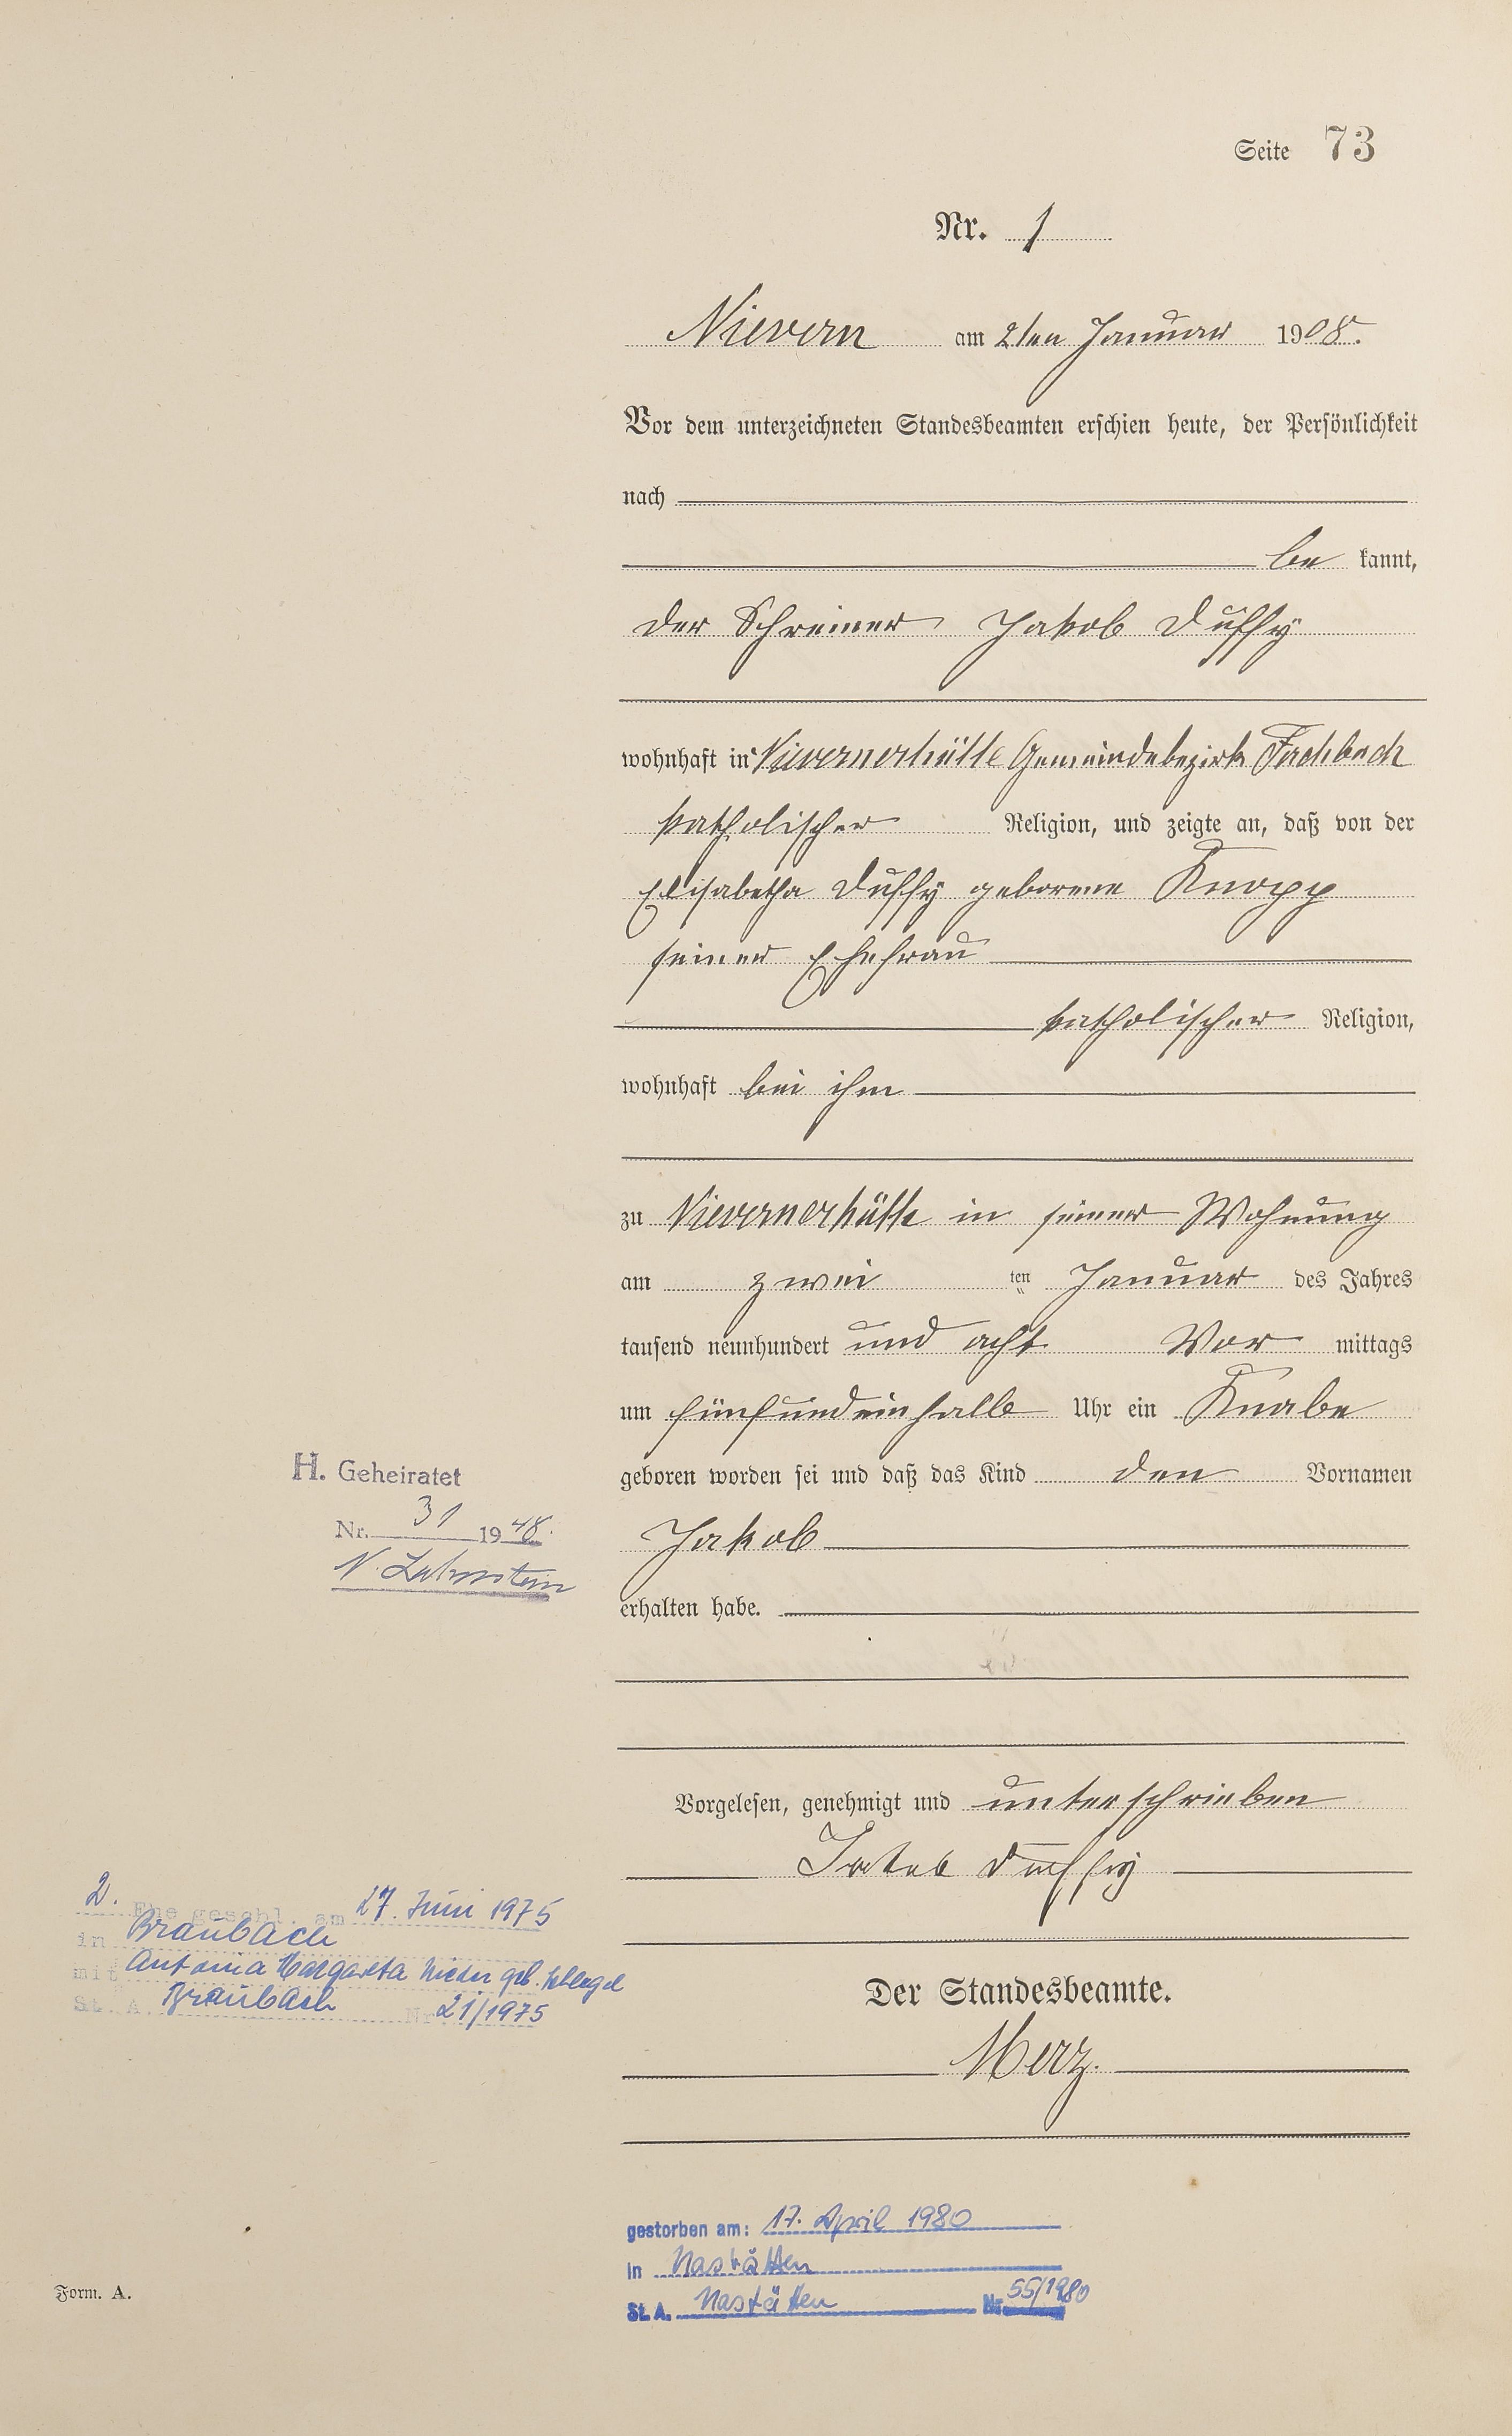 Seite 73
Nr. 1
Nievern am 2ten Januar 1908.
Vor dem unterzeichneten Standesbeamten erschien heute, der Persönlichkeit
nach
be kannt,
der Schreiner Jakob Duffy
wohnhaft in Nievernerhütte Gemeindebezirk Fachbach
katholischer Religion, und zeigte an, daß von der
Elisabetha Duffy geborene Knopp
seiner Ehefrau
katholischer Religion,
wohnhaft bei ihm
zu Nievernerhütte in seiner Wohnung
am zwei ten Januar des Jahres
tausend neunhundert und acht Vor mittags
um fünfundeinhalb Uhr ein Knabe
geboren worden sei und daß das Kind den Vornamen
Jakob
erhalten habe.
Vorgelesen, genehmigt und unterschrieben
Jakob Duffy
Der Standesbeamte.
Merz.
H. Geheiratet
Nr. 31 1948.
N. Lahnstein
2. Ehe geschl. am 27. Juni 1975
in Braubach
mit Antonia Margareta geb. Schlegel
St. A. Braubach Nr. 21/1975
gestorben am: 17. April 1980
in Nastätten
St. A. Nastätten Nr. 55/1980
Form. A.